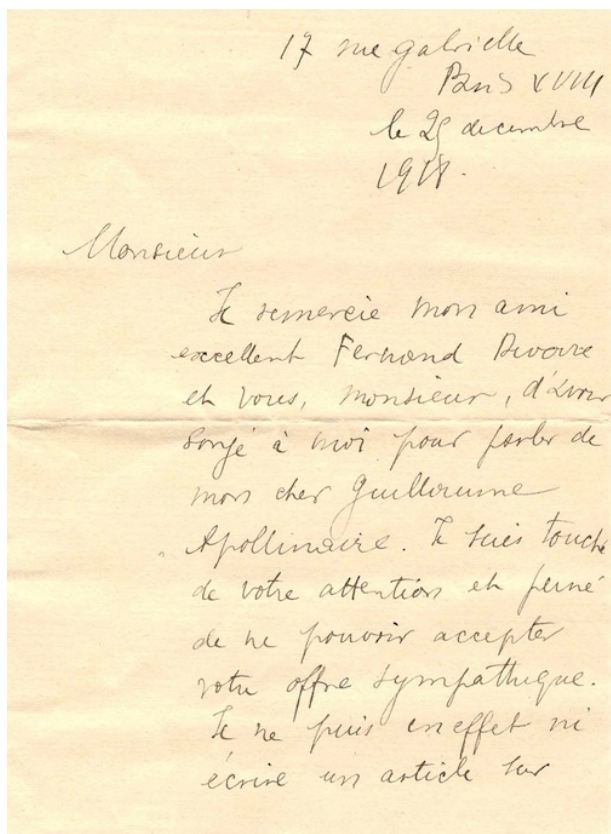 17 rue gabrielle
Paris XVIII
le 25 decembre
1918.
Monsieur
Je remercie mon ami
excellent Fernand Divoire
et vous, monsieur, d'avoir
songé à moi pour parler de
mon cher Guillaume
Apollinaire. Je suis touché
de votre attention et peiné
de ne pouvoir accepter
votre offre sympathique.
Je ne puis en effet ni
écrire un article sur